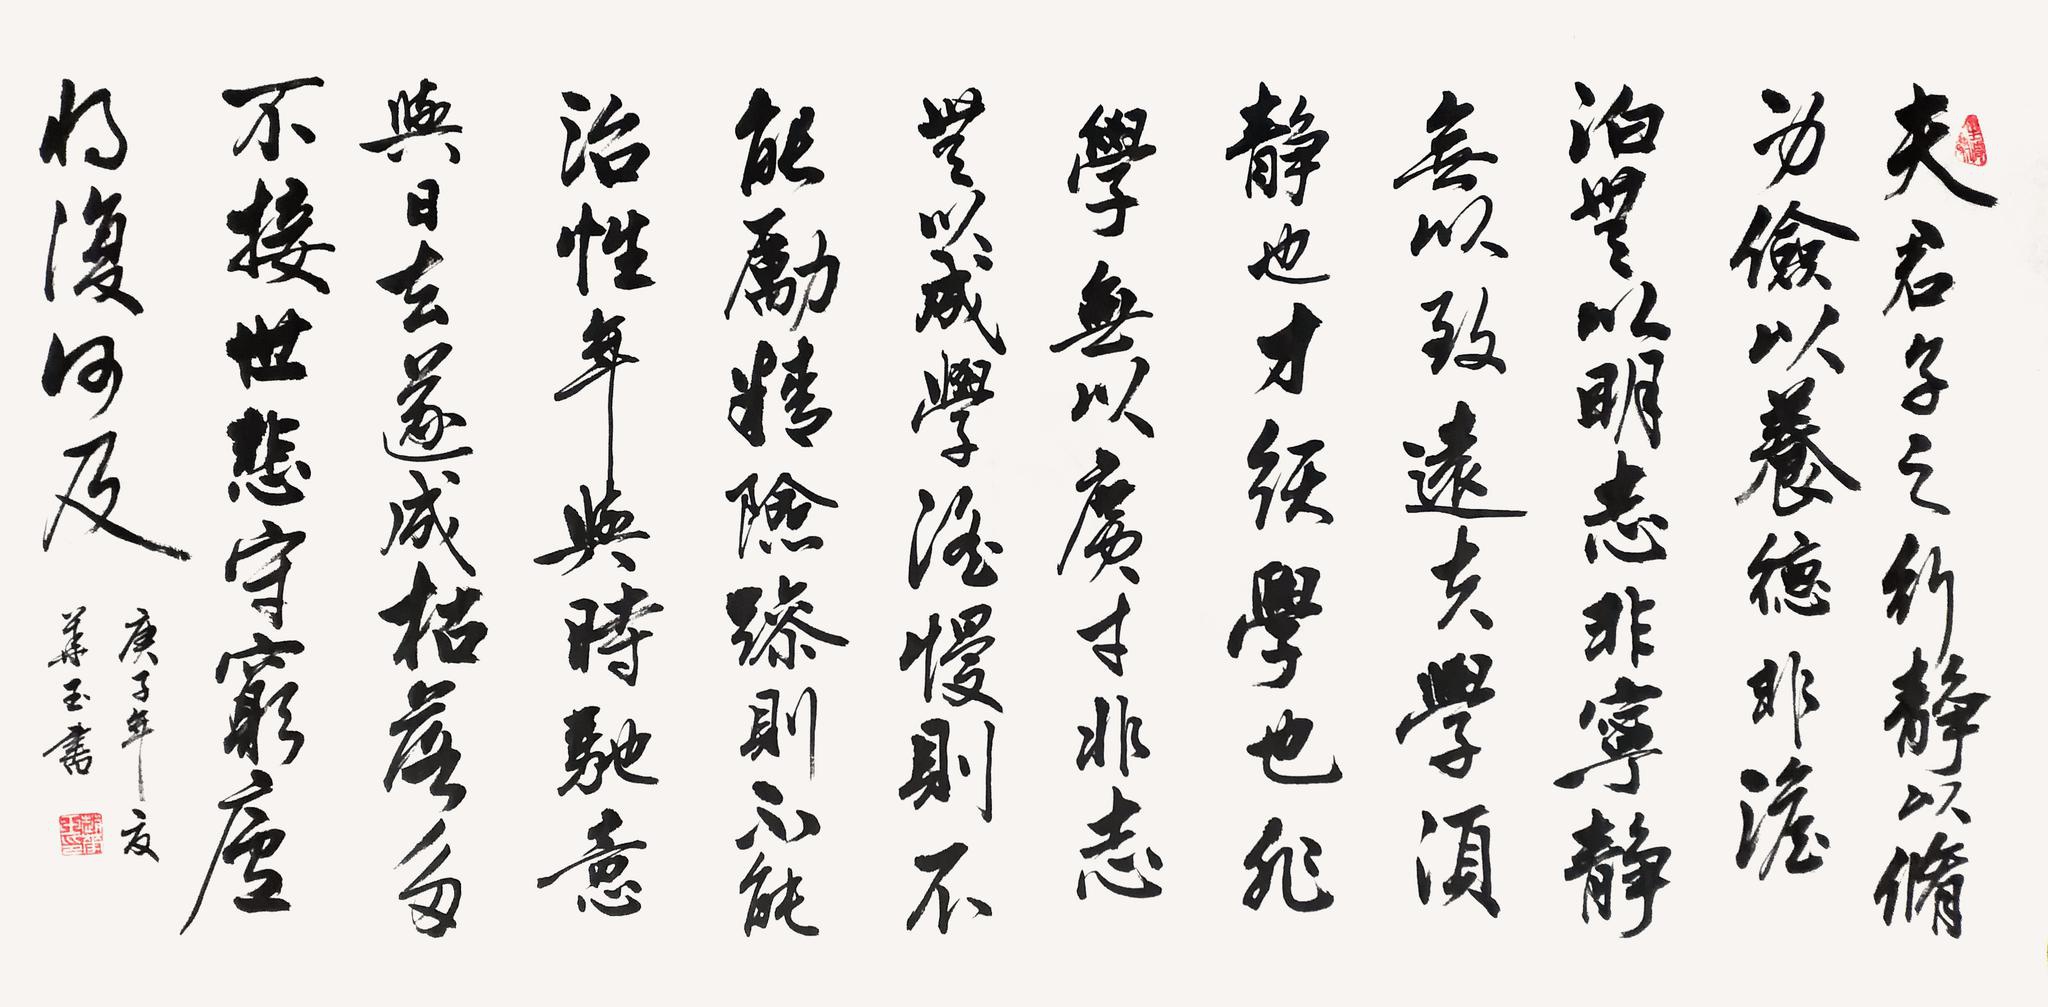 夫君子之行静以脩
身儉以養德非澹
泊無以明志非寧静
無以致遠夫學須
静也才須學也非
學無以廣才非志
無以成學滛慢則不
能勵精險躁則不能
治性年與時馳意
與日去遂成枯落多
不接世悲守窮廬
將復何及
庚子年夏
華玉書